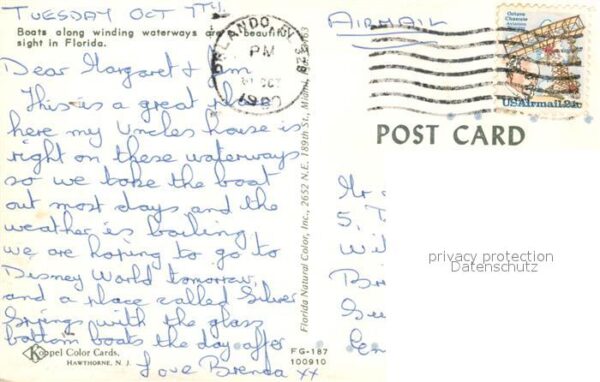 TUESDAY OCT 7TH.
Boats along winding waterways are a beautiful
sight in Florida.
Dear Margaret & Jim
This is a great place
here my Uncles house is
right on these waterways
so we take the boat
out most days and the
weather is boiling
we are hoping to go to
Disney World tomorrow,
and a place called Silver
Springs with the glass
bottom boats the day after
Love Brenda xx
Koppel Color Cards,
HAWTHORNE, N. J.
FG-187
100910
Florida Natural Color, Inc., 2652 N.E. 189th St., Miami, Fla.
ORLANDO, FL
PM
OCT
1980
AIRMAIL
Octave
Chanute
Aviation
USAirmail 21c
POST CARD
5, T
privacy protection
Datenschutz